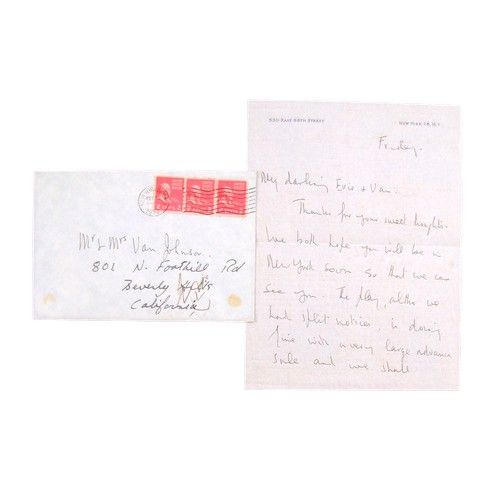 Mr & Mrs Van Johnson.
801 N. Foothill Rd
Beverly Hills
California
530 EAST 86TH STREET
NEW YORK 28, N.Y.
Friday.
My darling Evie + Van.
Thanks for your sweet thoughts.
We both hope you will be in
New York soon so that we can
see you. The play, altho we
had split notices, is doing
fine with a very large advance
sale and we shall